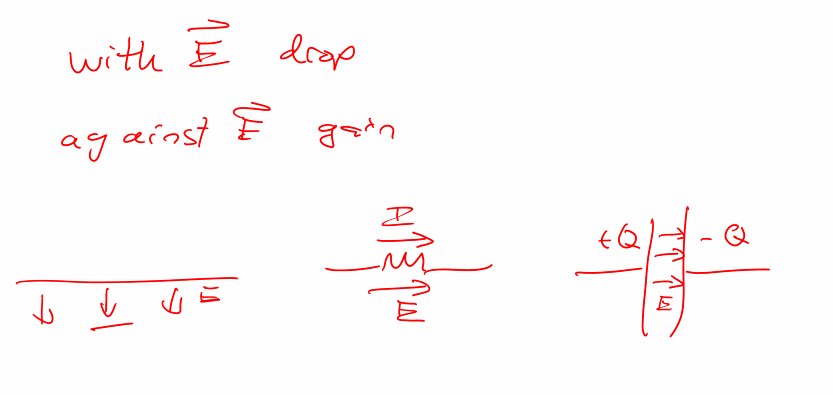 with E drop
against E gain
I
+Q - Q
E
E
E